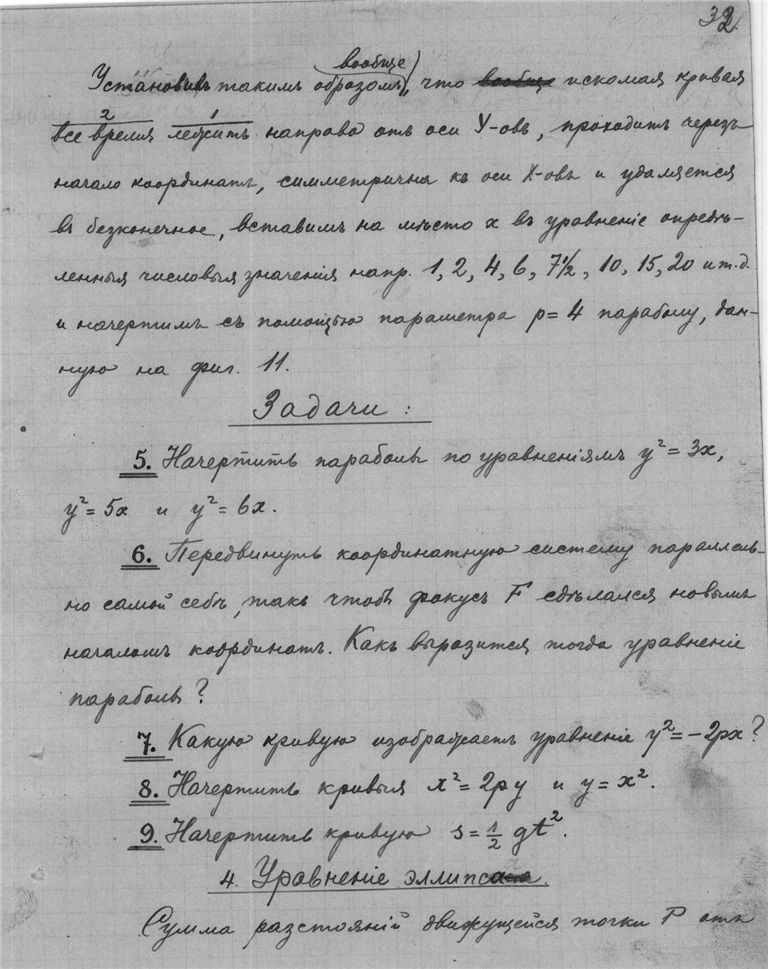 32
вообще
Установивъ такимъ образомъ, что вообще искомая кривая
2 1
все время лежитъ направо отъ оси Y-овъ, проходитъ черезъ
начало координатъ, симметрична къ оси X-овъ и удаляется
въ безконечное, вставимъ на мѣсто x въ уравненіе опредѣ-
ленныя числовыя значенія напр. 1, 2, 4, 6, 7½, 10, 15, 20 и т.д.
и начертимъ съ помощью параметра p = 4 параболу, дан-
ную на фиг. 11.
Задачи:
5. Начертить параболы по уравненіямъ y² = 3x,
y² = 5x и y² = 6x.
6. Передвинуть координатную систему параллель-
но самой себѣ, такъ чтобъ фокусъ F сдѣлался новымъ
началомъ координатъ. Какъ выразится тогда уравненіе
параболы?
7. Какую кривую изображаетъ уравненіе y² = -2px?
8. Начертить кривыя x² = 2py и y = x².
9. Начертить кривую s = 1/2 gt².
4. Уравненіе эллипса.
Сумма разстояній движущейся точки P отъ